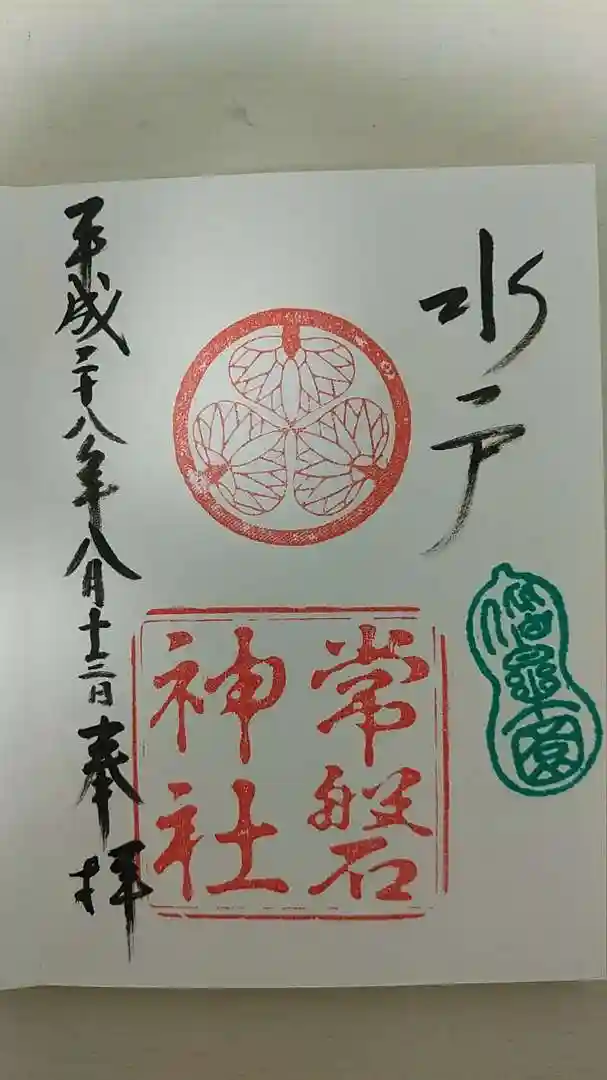 水戸
偕楽園
常磐
神社
平成二十八年八月十三日奉拝